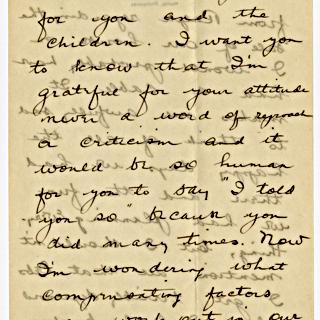 for you and the
children. I want you
to know that I'm
grateful for your attitude
never a word of reproach
or criticism and it
would be so human
for you to say "I told
you so" because you
did many times. Now
I'm wondering what
compensating factors
our